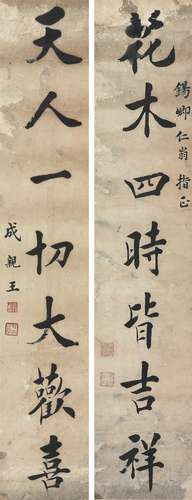 花木四時皆吉祥
錫卿仁翁指正
天人一切大歡喜
成親王